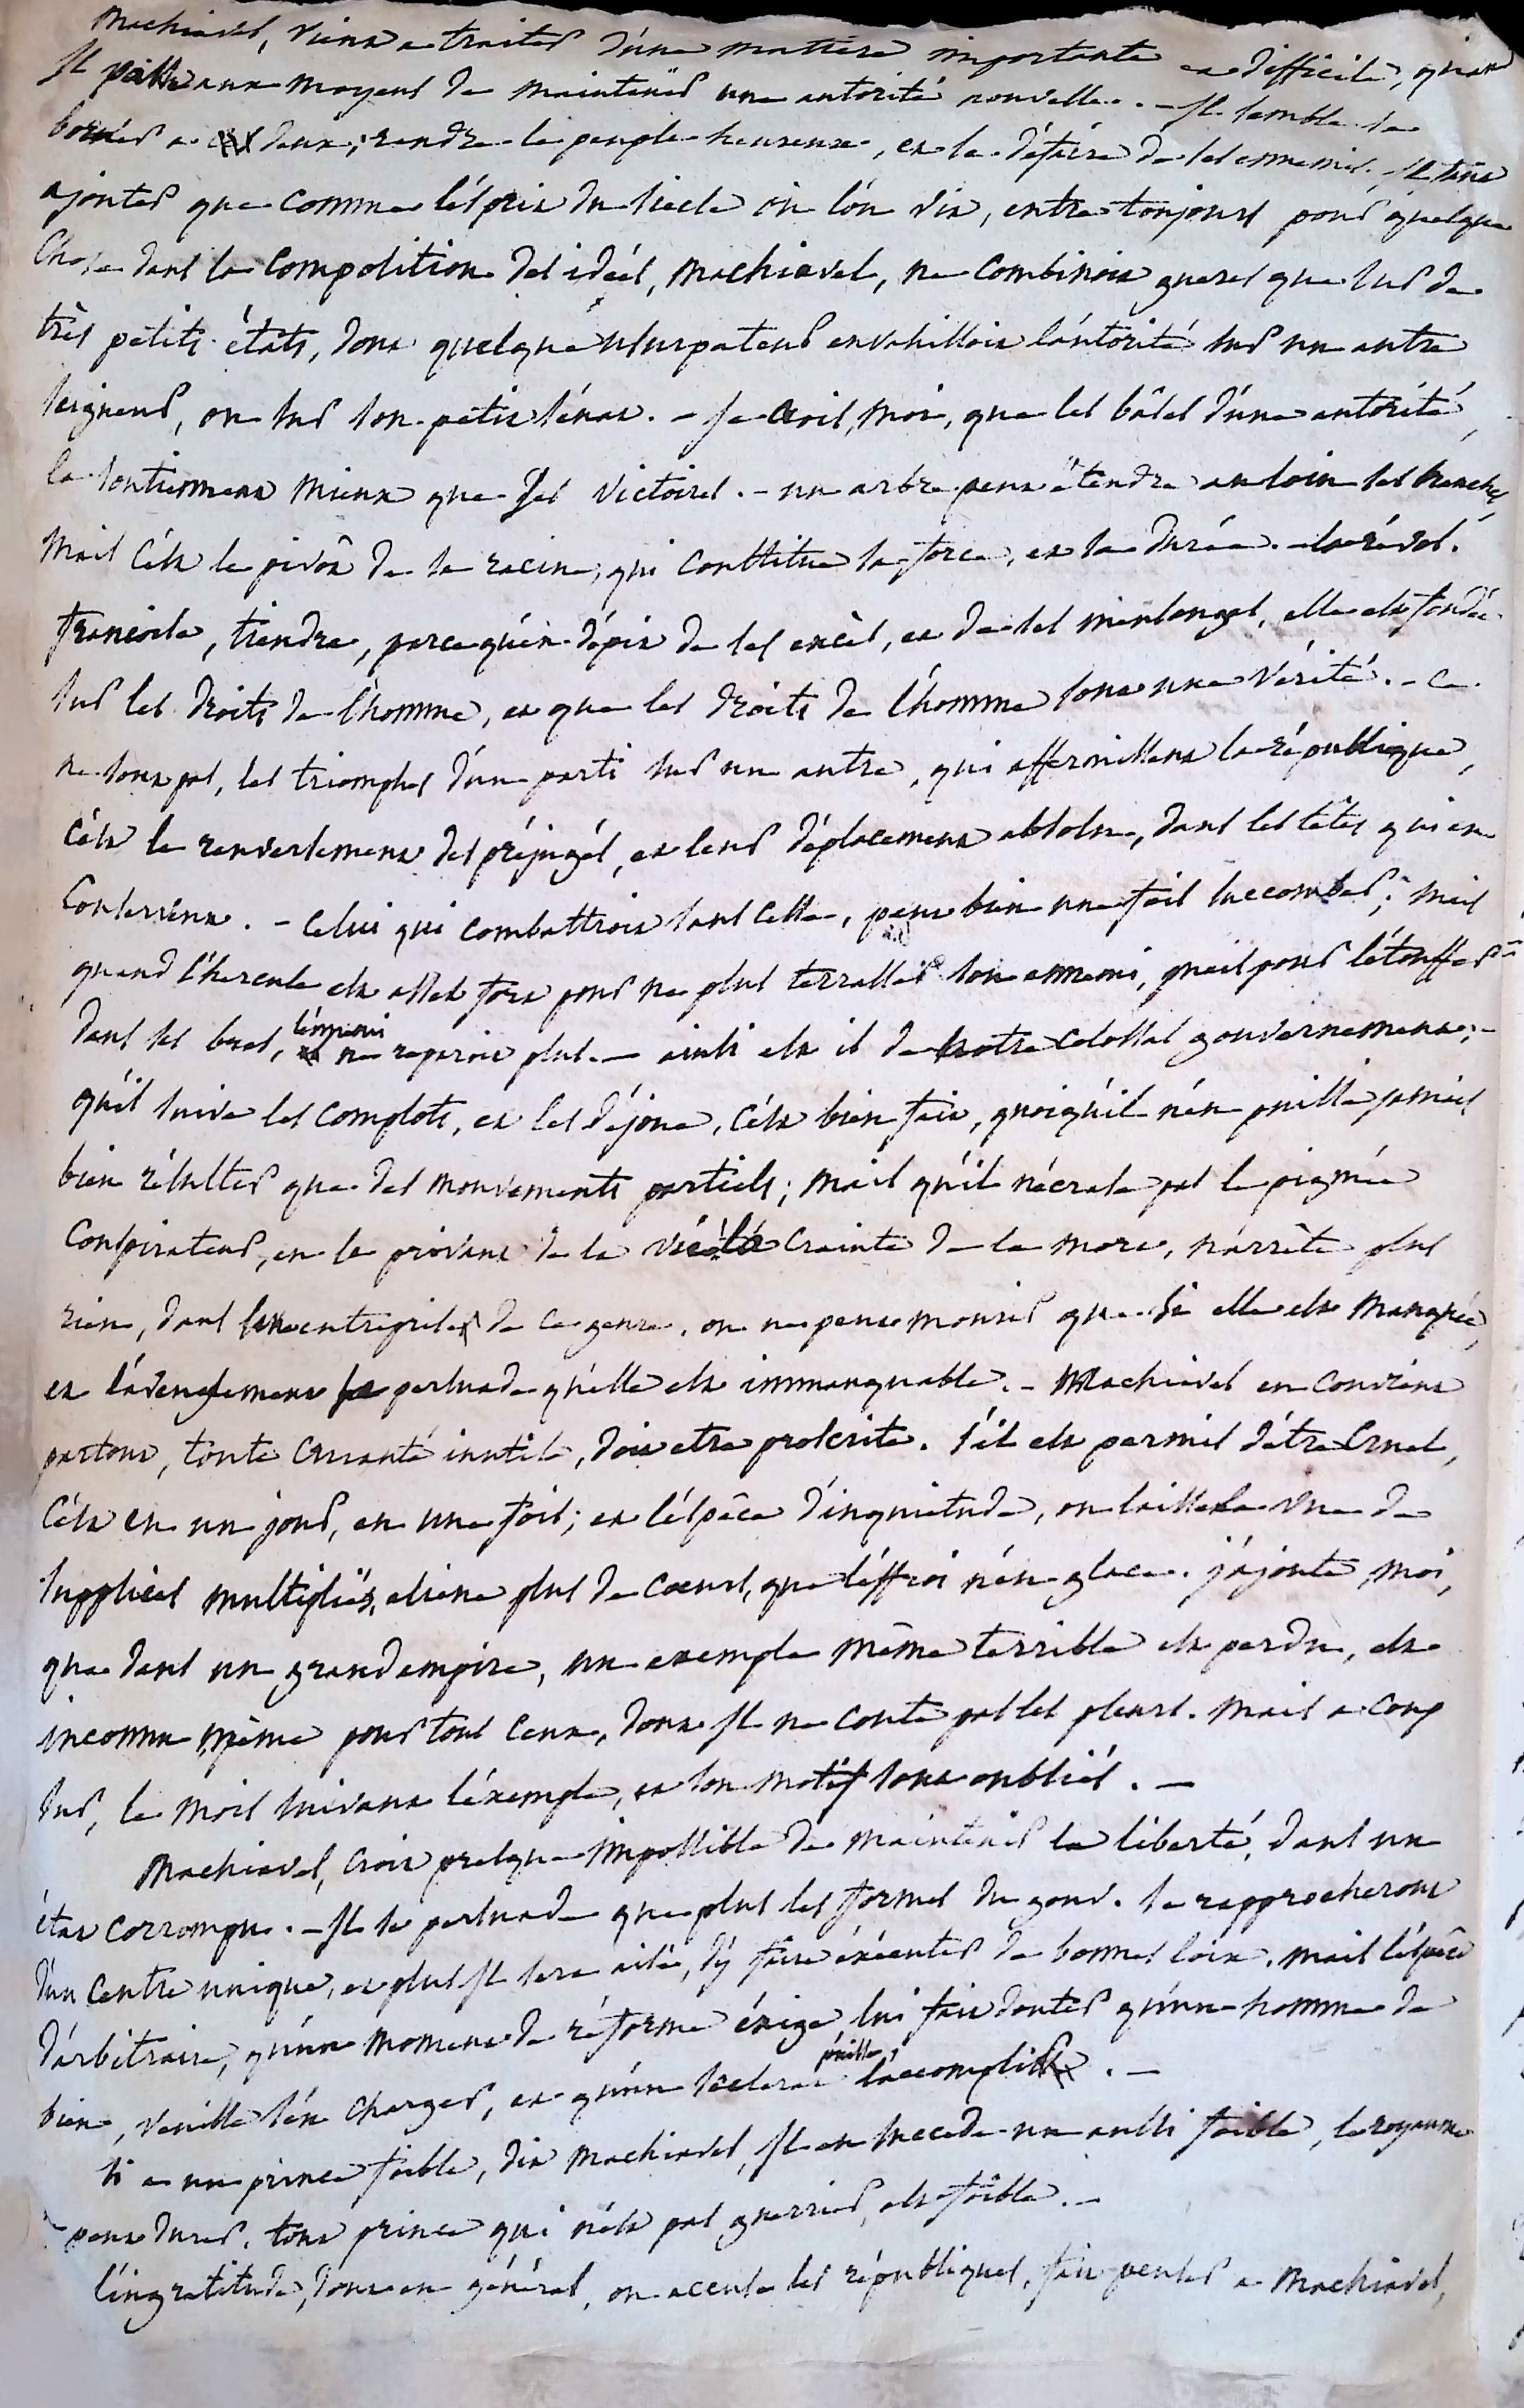 Machiavel, vient a traiter d'une matiere importante et difficile, quand
Il passe aux moyens de maintenir une autorité nouvelle. - Il semble se
borner a deux; rendre le peuple heureux, et se défaire de ses ennemis. Il faut
ajouter que comme l'esprit du siecle où l'on vit, entre toujours pour quelque
chose dans la composition des idées, Machiavel, ne combinoit gueres que sur de
très petits états, dont quelque usurpateur envahissoit l'autorité sur un autre
seigneur, ou sur son petit sénat. - Je crois, moi, que les bâses d'une autorité,
la soutiennent mieux que ses victoires. - un arbre peut étendre au loin ses branches,
mais c'est le pivôt de sa racine, qui constitue sa force, et sa durée. - la révol.
françoise, tiendra, parcequ'en dépit de ses excès, et de ses mensonges, elle est fondée
sur les droits de l'homme, et que les droits de l'homme sont une vérité. - ce
ne sont pas, les triomphes d'un parti sur un autre, qui affermissent la république,
c'est le renversement des préjugés, et leur déplacement absolu, dans les têtes qui en
conservent. - celui qui combattroit sans cesse, peut bien une fois succomber; mais
quand l'hercule est assez fort pour ne plus terrasser son ennemi, mais pour l'étouffer
dans ses bras, l'ennemi ne reparoit plus. - ainsi est il de notre colossal gouvernement; -
qu'il suive les complots, et les déjoue, c'est bien fait, quoiqu'il n'en puisse jamais
bien résulter que des mouvements partiels; mais qu'il n'écrase pas le pigmée
conspirateur, en le privant de la vie. la crainte de la mort, n'arrête plus
rien, dans une entreprise de ce genre. on ne peut mourir que si elle est manquée,
et l'aveuglement persuade qu'elle est immanquable. - Machiavel en convient
partout, toute cruauté inutile, doit etre proscrite. s'il est permis d'être cruel,
c'est en un jour, en une fois; et l'éspèce d'inquietude, où laisse la vue de
supplices multipliés, aliene plus de coeurs, que l'effroi n'en glace. j'ajoute, moi,
que dans un grand empire, un exemple même terrible est perdu, est
inconnu même pour tous ceux, dont Il ne coute pas les pleurs. mais a coup
sur, le mois suivant l'exemple, et son motif sont oubliés. -
Machiavel, croit presque impossible de maintenir la liberté, dans un
état corrompu. - Il se persuade que plus les formes du gouv. se rapprocheront
d'un centre unique, et plus Il sera aisé, d'y faire éxécuter de bonnes loix. mais l'éspèce
d'arbitraire, qu'un moment de réforme éxige lui fait douter qu'un homme de
bien, veuille s'en charger, et qu'un scelerat puisse, l'accomplir. -
si a un prince foible, dit Machiavel, Il en succede un aussi foible, le royaume
peut durer. tout prince qui n'est pas guerrier, est foible. -
l'ingratitude, dont en général, on accuse les républiques, fait penser a Machiavel,